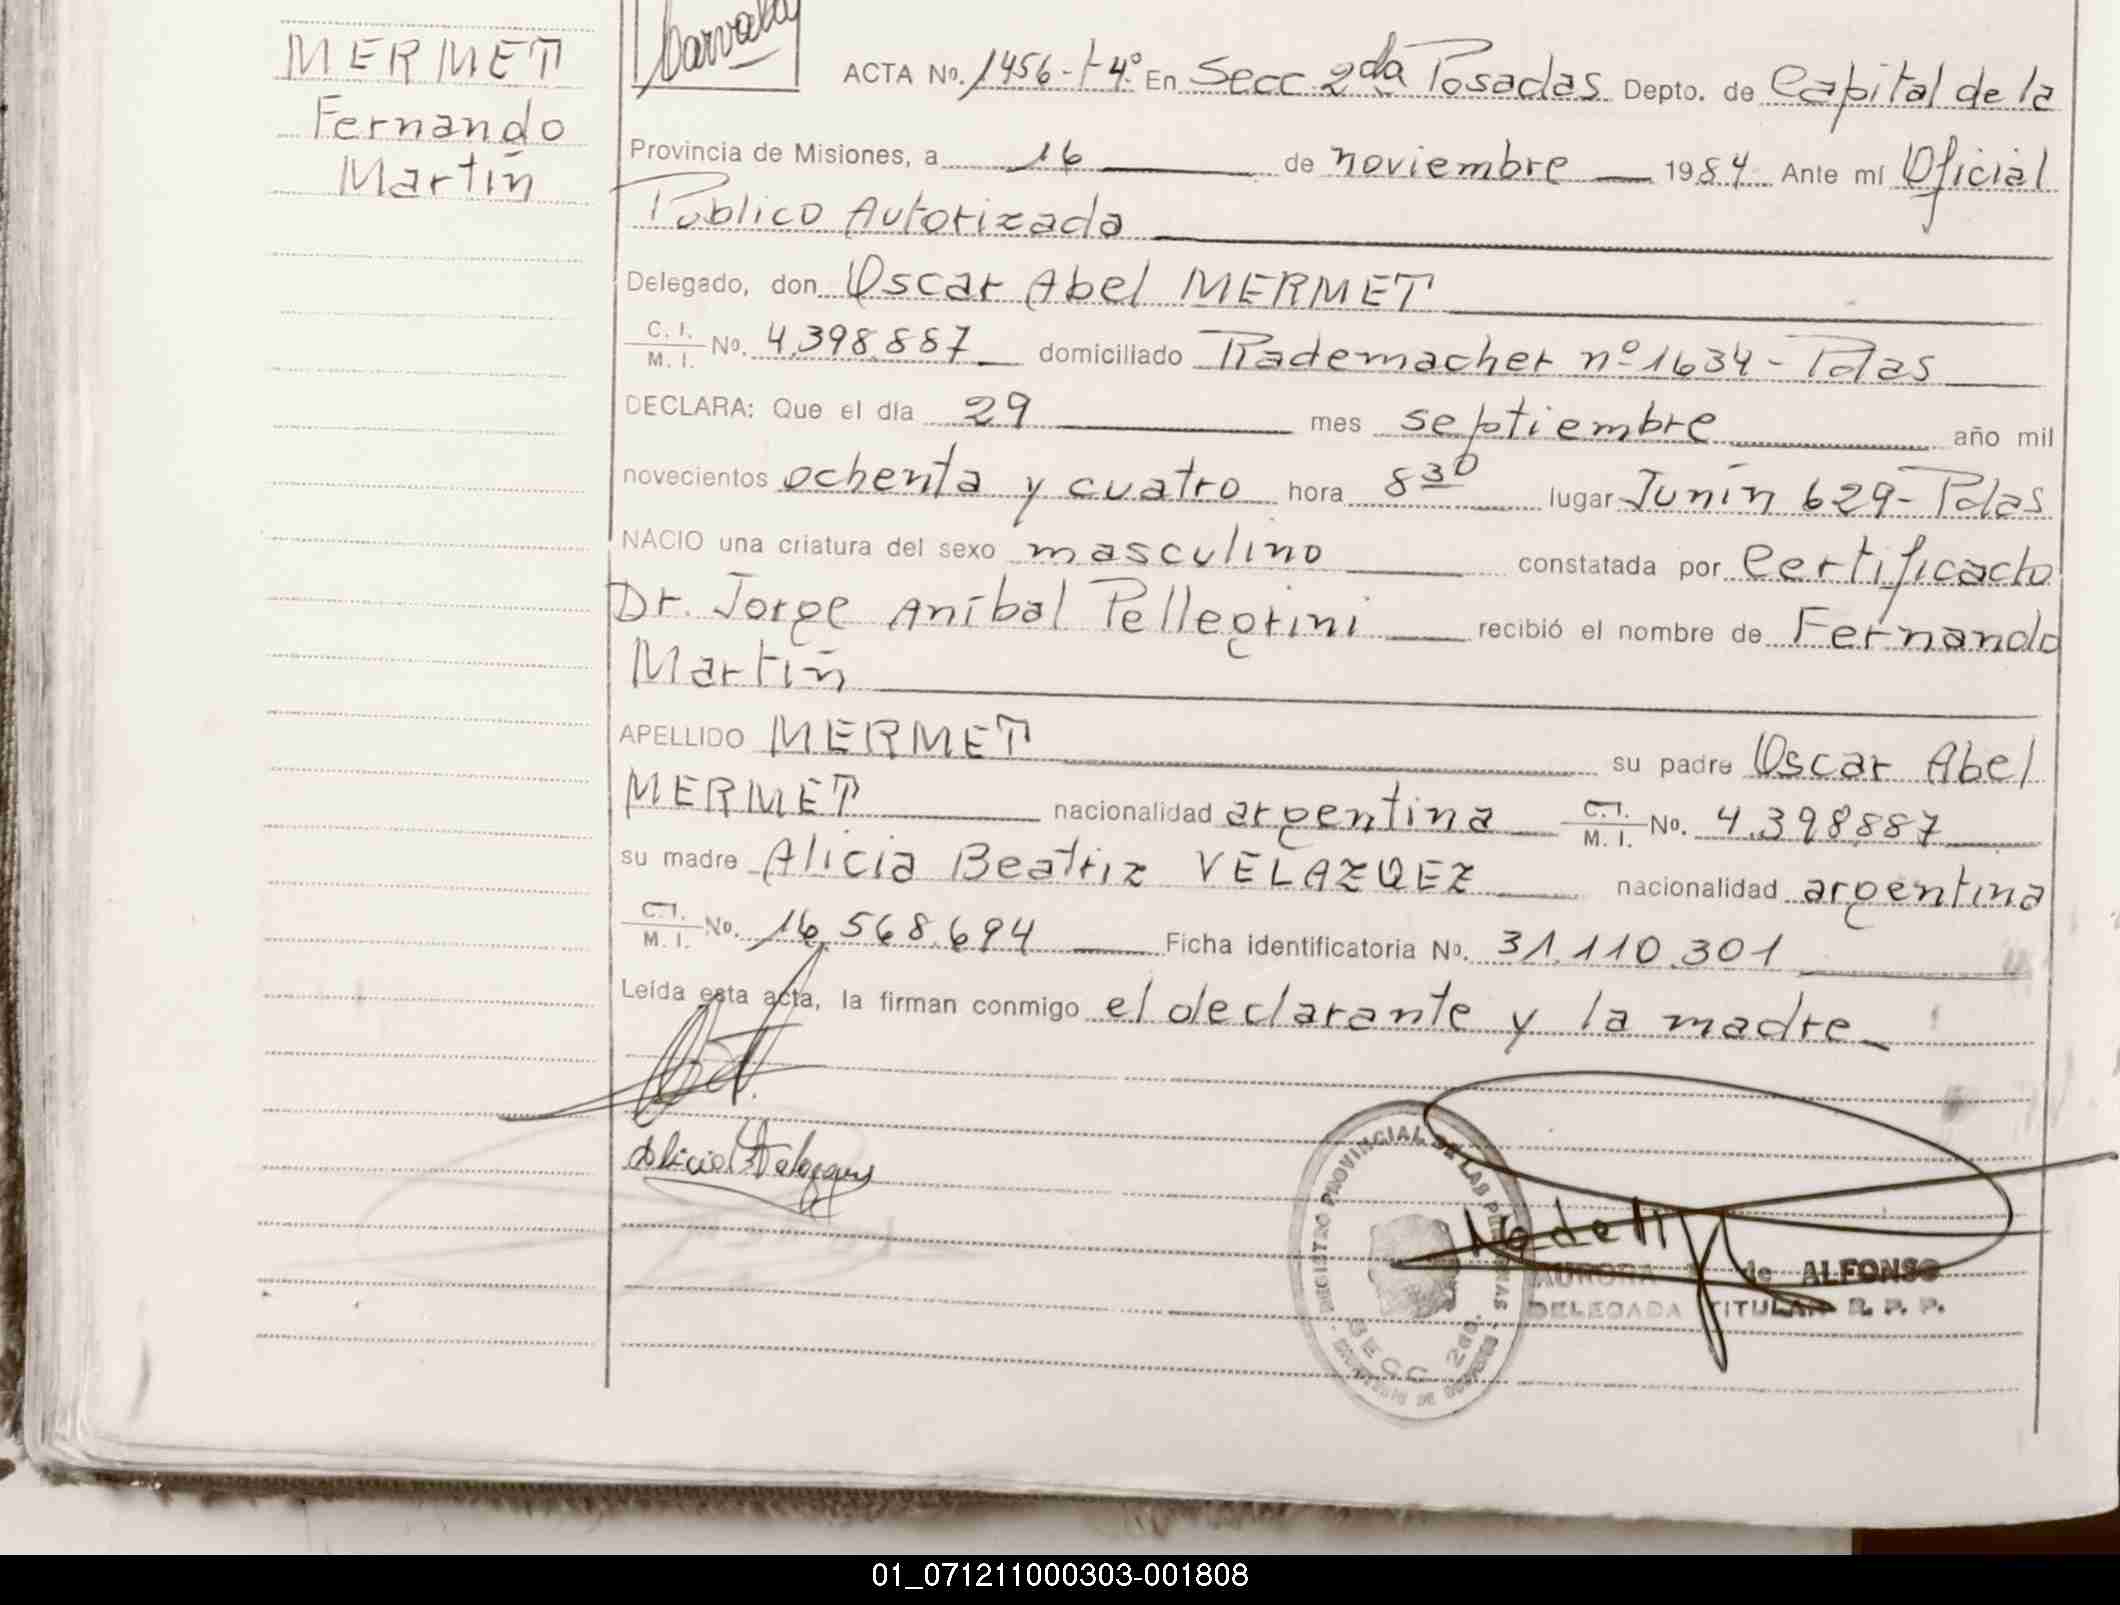 MERMET
Fernando
Martín
ACTA Nº. 1456-t-4º En Secc 2da Posadas Depto. de Capital de la
Provincia de Misiones, a 16 de noviembre 1984 Ante mí Oficial
Público Autorizada
Delegado, don Oscar Abel MERMET
C. I. / M. I. Nº. 4.398.887 domiciliado Rademacher nº 1634 - Pdas
DECLARA: Que el día 29 mes septiembre año mil
novecientos ochenta y cuatro hora 8 30 lugar Junín 629 - Pdas
NACIO una criatura del sexo masculino constatada por Certificado
Dr. Jorge Aníbal Pellegrini recibió el nombre de Fernando
Martín
APELLIDO MERMET su padre Oscar Abel
MERMET nacionalidad argentina C. I. / M. I. Nº. 4.398.887
su madre Alicia Beatriz VELAZQUEZ nacionalidad argentina
C. I. / M. I. Nº. 16.568.694 Ficha identificatoria Nº. 31.110.301
Leída esta acta, la firman conmigo el declarante y la madre
REGISTRO PROVINCIAL DE LAS PERSONAS
SECC 2da.
AURORA de ALFONSO
DELEGADA TITULAR R. P. P.
01_071211000303-001808